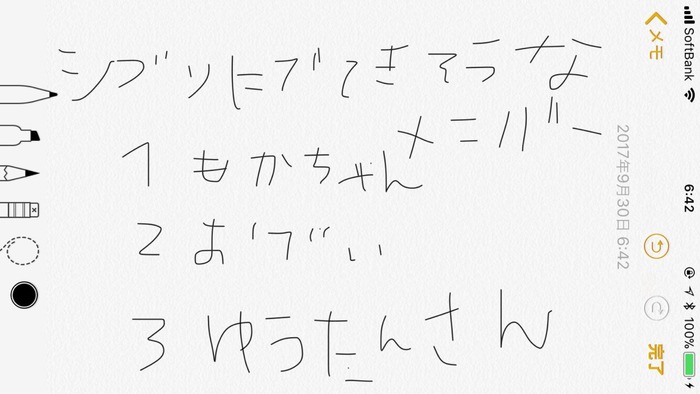 SoftBank 6:42 100%
メモ 完了
2017年9月30日 6:42
ジブリにでてきそうな
メニバー
1 もかちゃん
2
3 ゆうたんさん